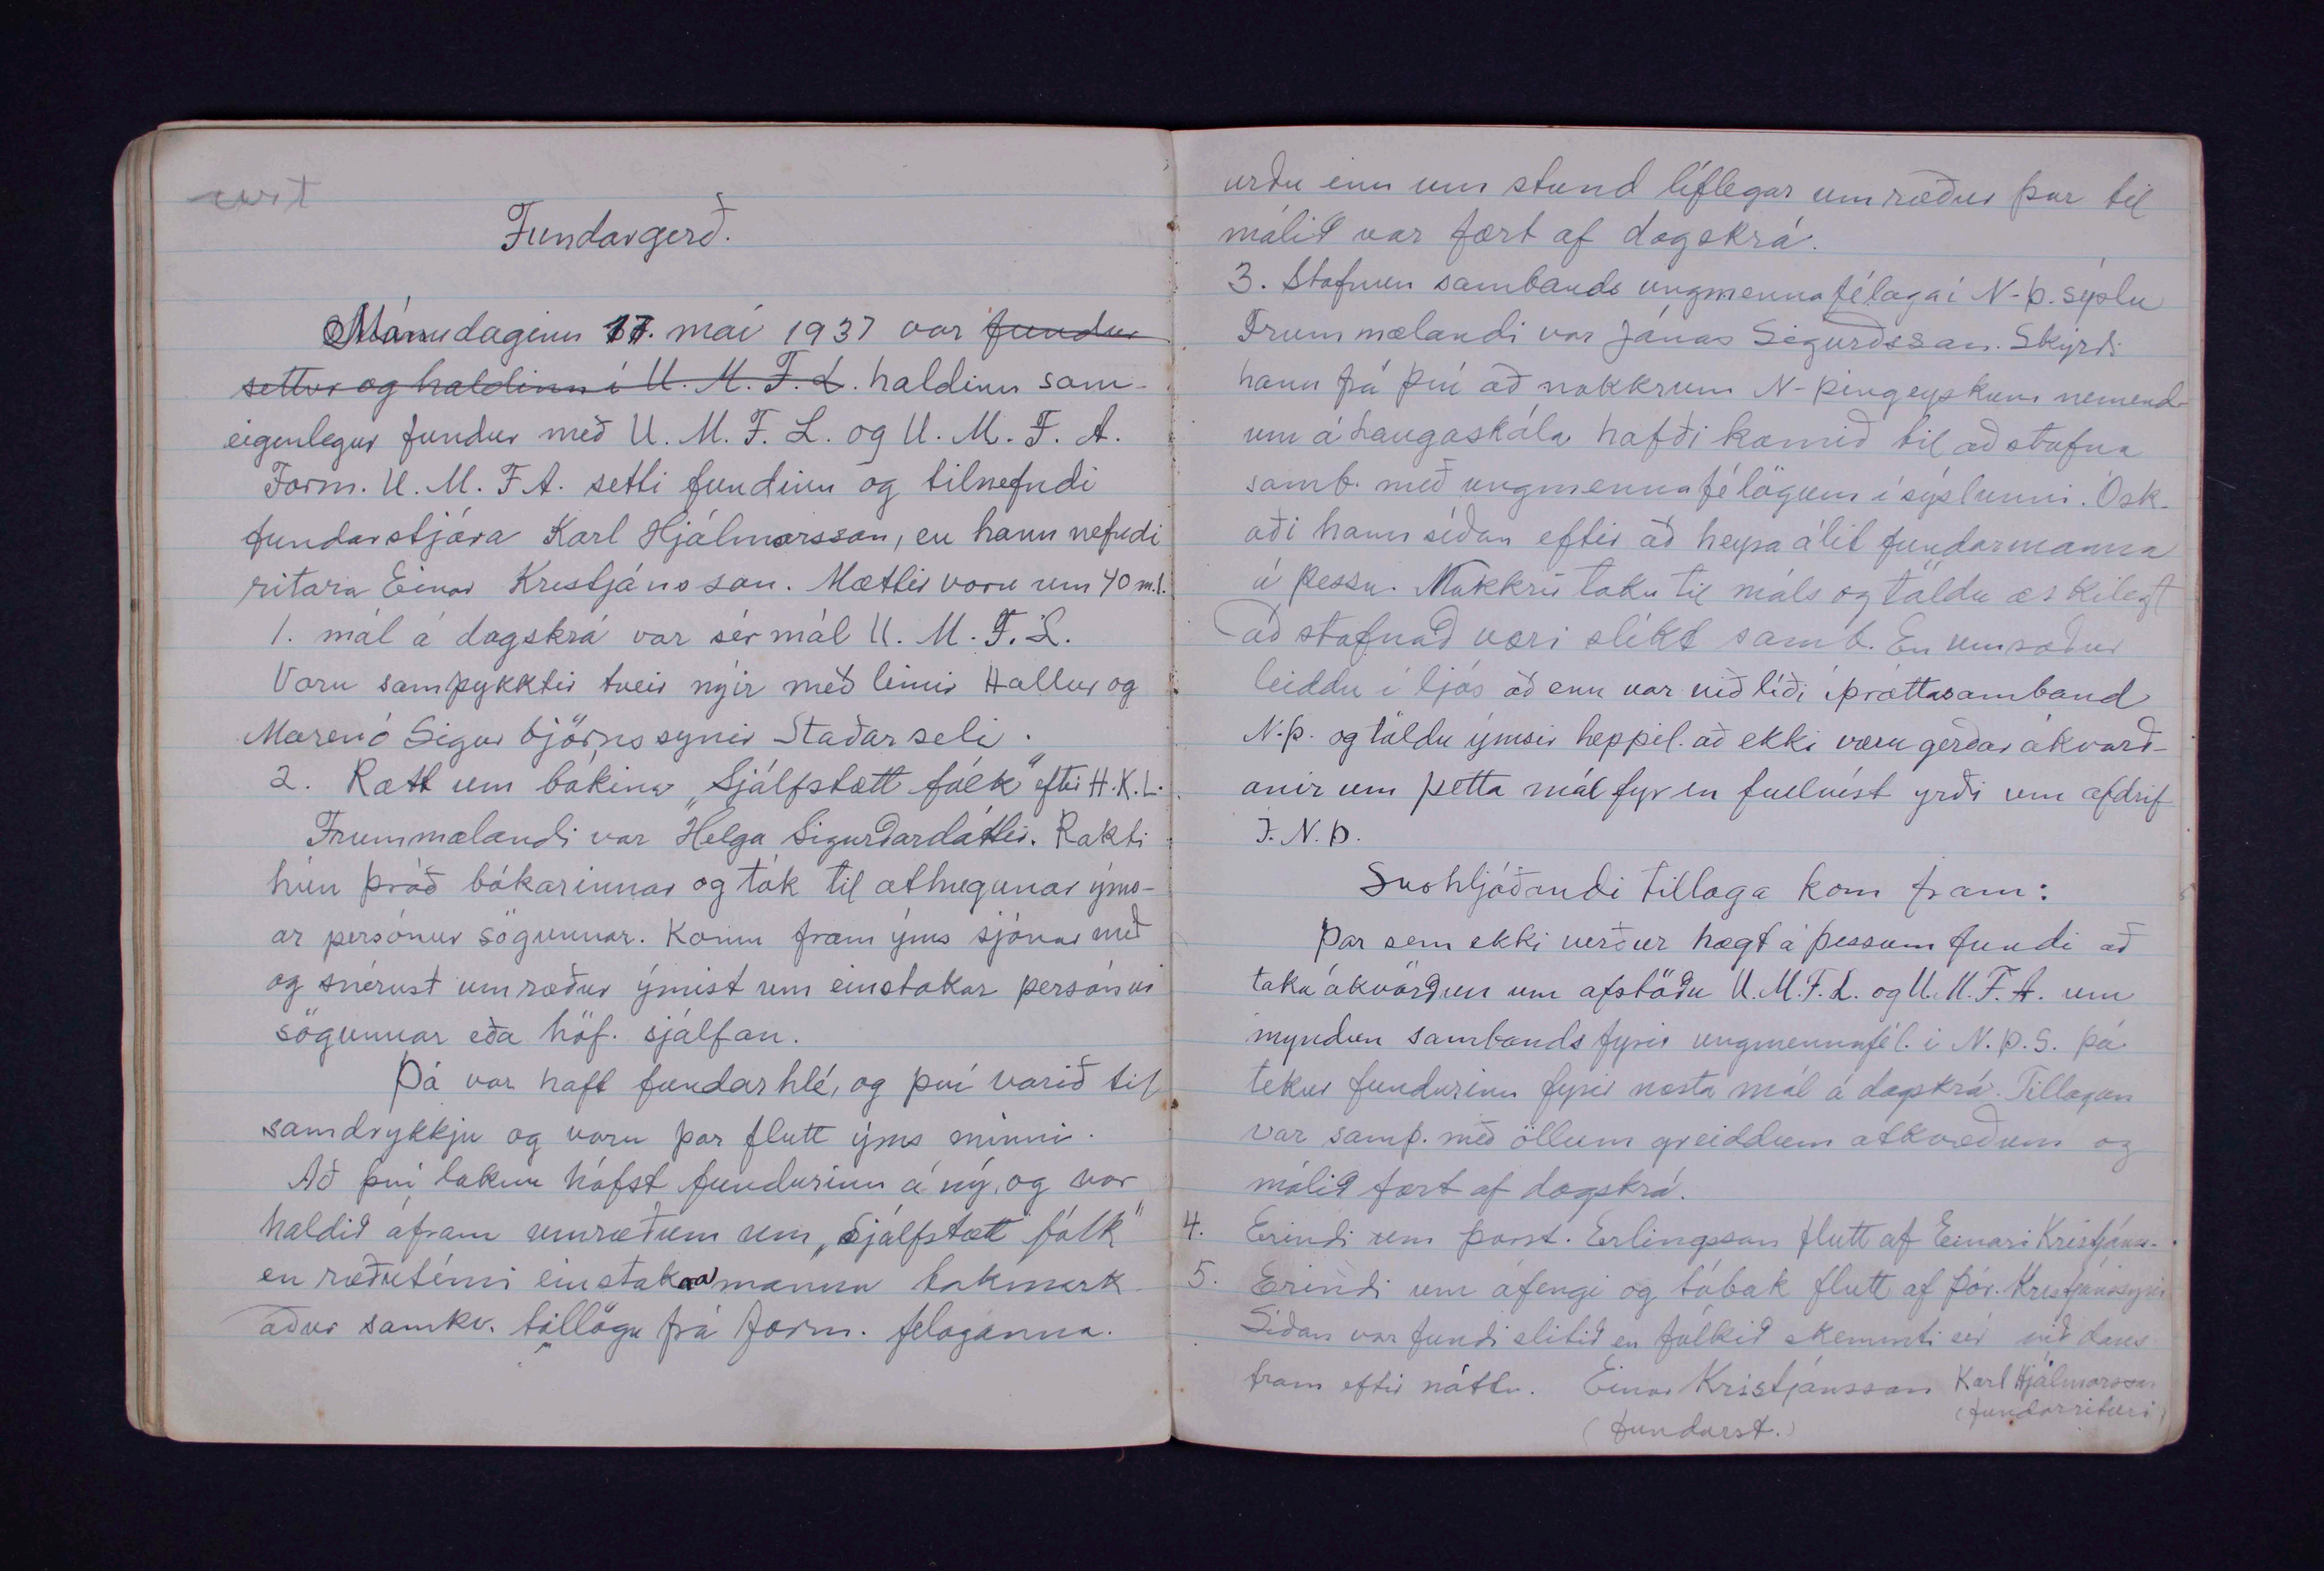 Fundargerð.
Mánudaginn 17. maí 1937 var fundur
settur og haldinn í U. M. F. L. haldinn sam-
eigenlegur fundur með U. M. F. L. og U. M. F. A.
Form. U. M. F A. setti fundinn og tilnefndi
fundarstjóra Karl Hjálmarsson, en hann nefndi
ritara Einar Kristjánsson. Mættir voru um 40 m.l.
1. mál á dagskrá var sér mál U. M. F. L.
Voru samþykktir tveir nýir með limir Hallur og
Marenó Sigurbjörnssynir Staðarseli.
2. Rætt um bókina „Sjálfstætt fólk" eftir H.K.L.
Frummælandi var Helga Sigurðardóttir. Rakti
hún þráð bókarinnar og tók til athugunar ýms-
ar persónur sögunnar. Komu fram ýms sjónar mið
og snérust umræður ýmist um einstakar persónur
sögunnar eða höf. sjálfan.
Þá var haft fundarhlé, og því varið til
samdrykkju og voru þar flutt ýms minni.
Að því loknu hófst fundurinn á ný, og var
haldið áfram umræðum um „Sjálfstætt fólk"
en ræðutími einstakra manna takmark-
aður samkv. tillögu frá form. felaganna.
urðu enn um stund líflegar umræður þar til
málið var fært af dagskrá.
3. Stofnun sambands ungmennafélaga í N-Þ. sýslu
Frummælandi var Jónas Sigurðsson. Skýrði
hann frá því að nokkrum N-þingeyskum nemend-
um á Laugaskóla hafði komið til að stofna
samb. með ungmennafélögum í sýslunni. Ósk-
aði hann síðan eftir að heyra álit fundarmanna
á þessu. Nokkrir toku til máls og töldu æskilegt
að stofnað væri slíkt samb. En umræður
leiddu í ljós að enn var við líði íþróttasamband
N.Þ. og töldu ýmsir heppil. að ekki væru gerðar ákvarð-
anir um þetta mál fyr en fullvíst yrði um afdrif
Í. N. Þ.
Svohljóðandi tillaga kom fram:
Þar sem ekki verður hægt á þessum fundi að
taka ákvörðun um afstöðu U.M.F.L. og U.M.F.A. um
myndun sambands fyrir ungmennafél. í N.Þ.S. þá
tekur fundurinn fyrir næsta mál á dagskrá. Tillagan
var samþ. með öllum greiddum atkvæðum og
málið fært af dagskrá.
4. Erindi um Þorst. Erlingsson flutt af Einari Kristjáns-
5. Erindi um áfengi og tóbak flutt af Þór. Kristjánssyni
Síðan var fundi slitið en fólkið skemmti sér við dans
fram eftir nóttu. Einar Kristjánsson Karl Hjálmarsson
(fundarst.) (fundarritari)